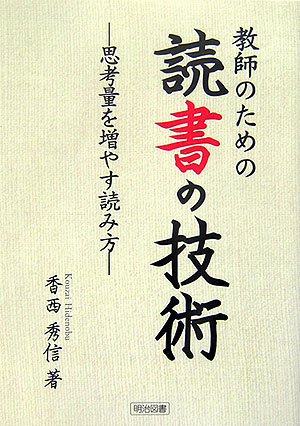 教師のための
読書の技術
―思考量を増やす読み方―
香西秀信 著
Kouzai Hidenobu
明治図書